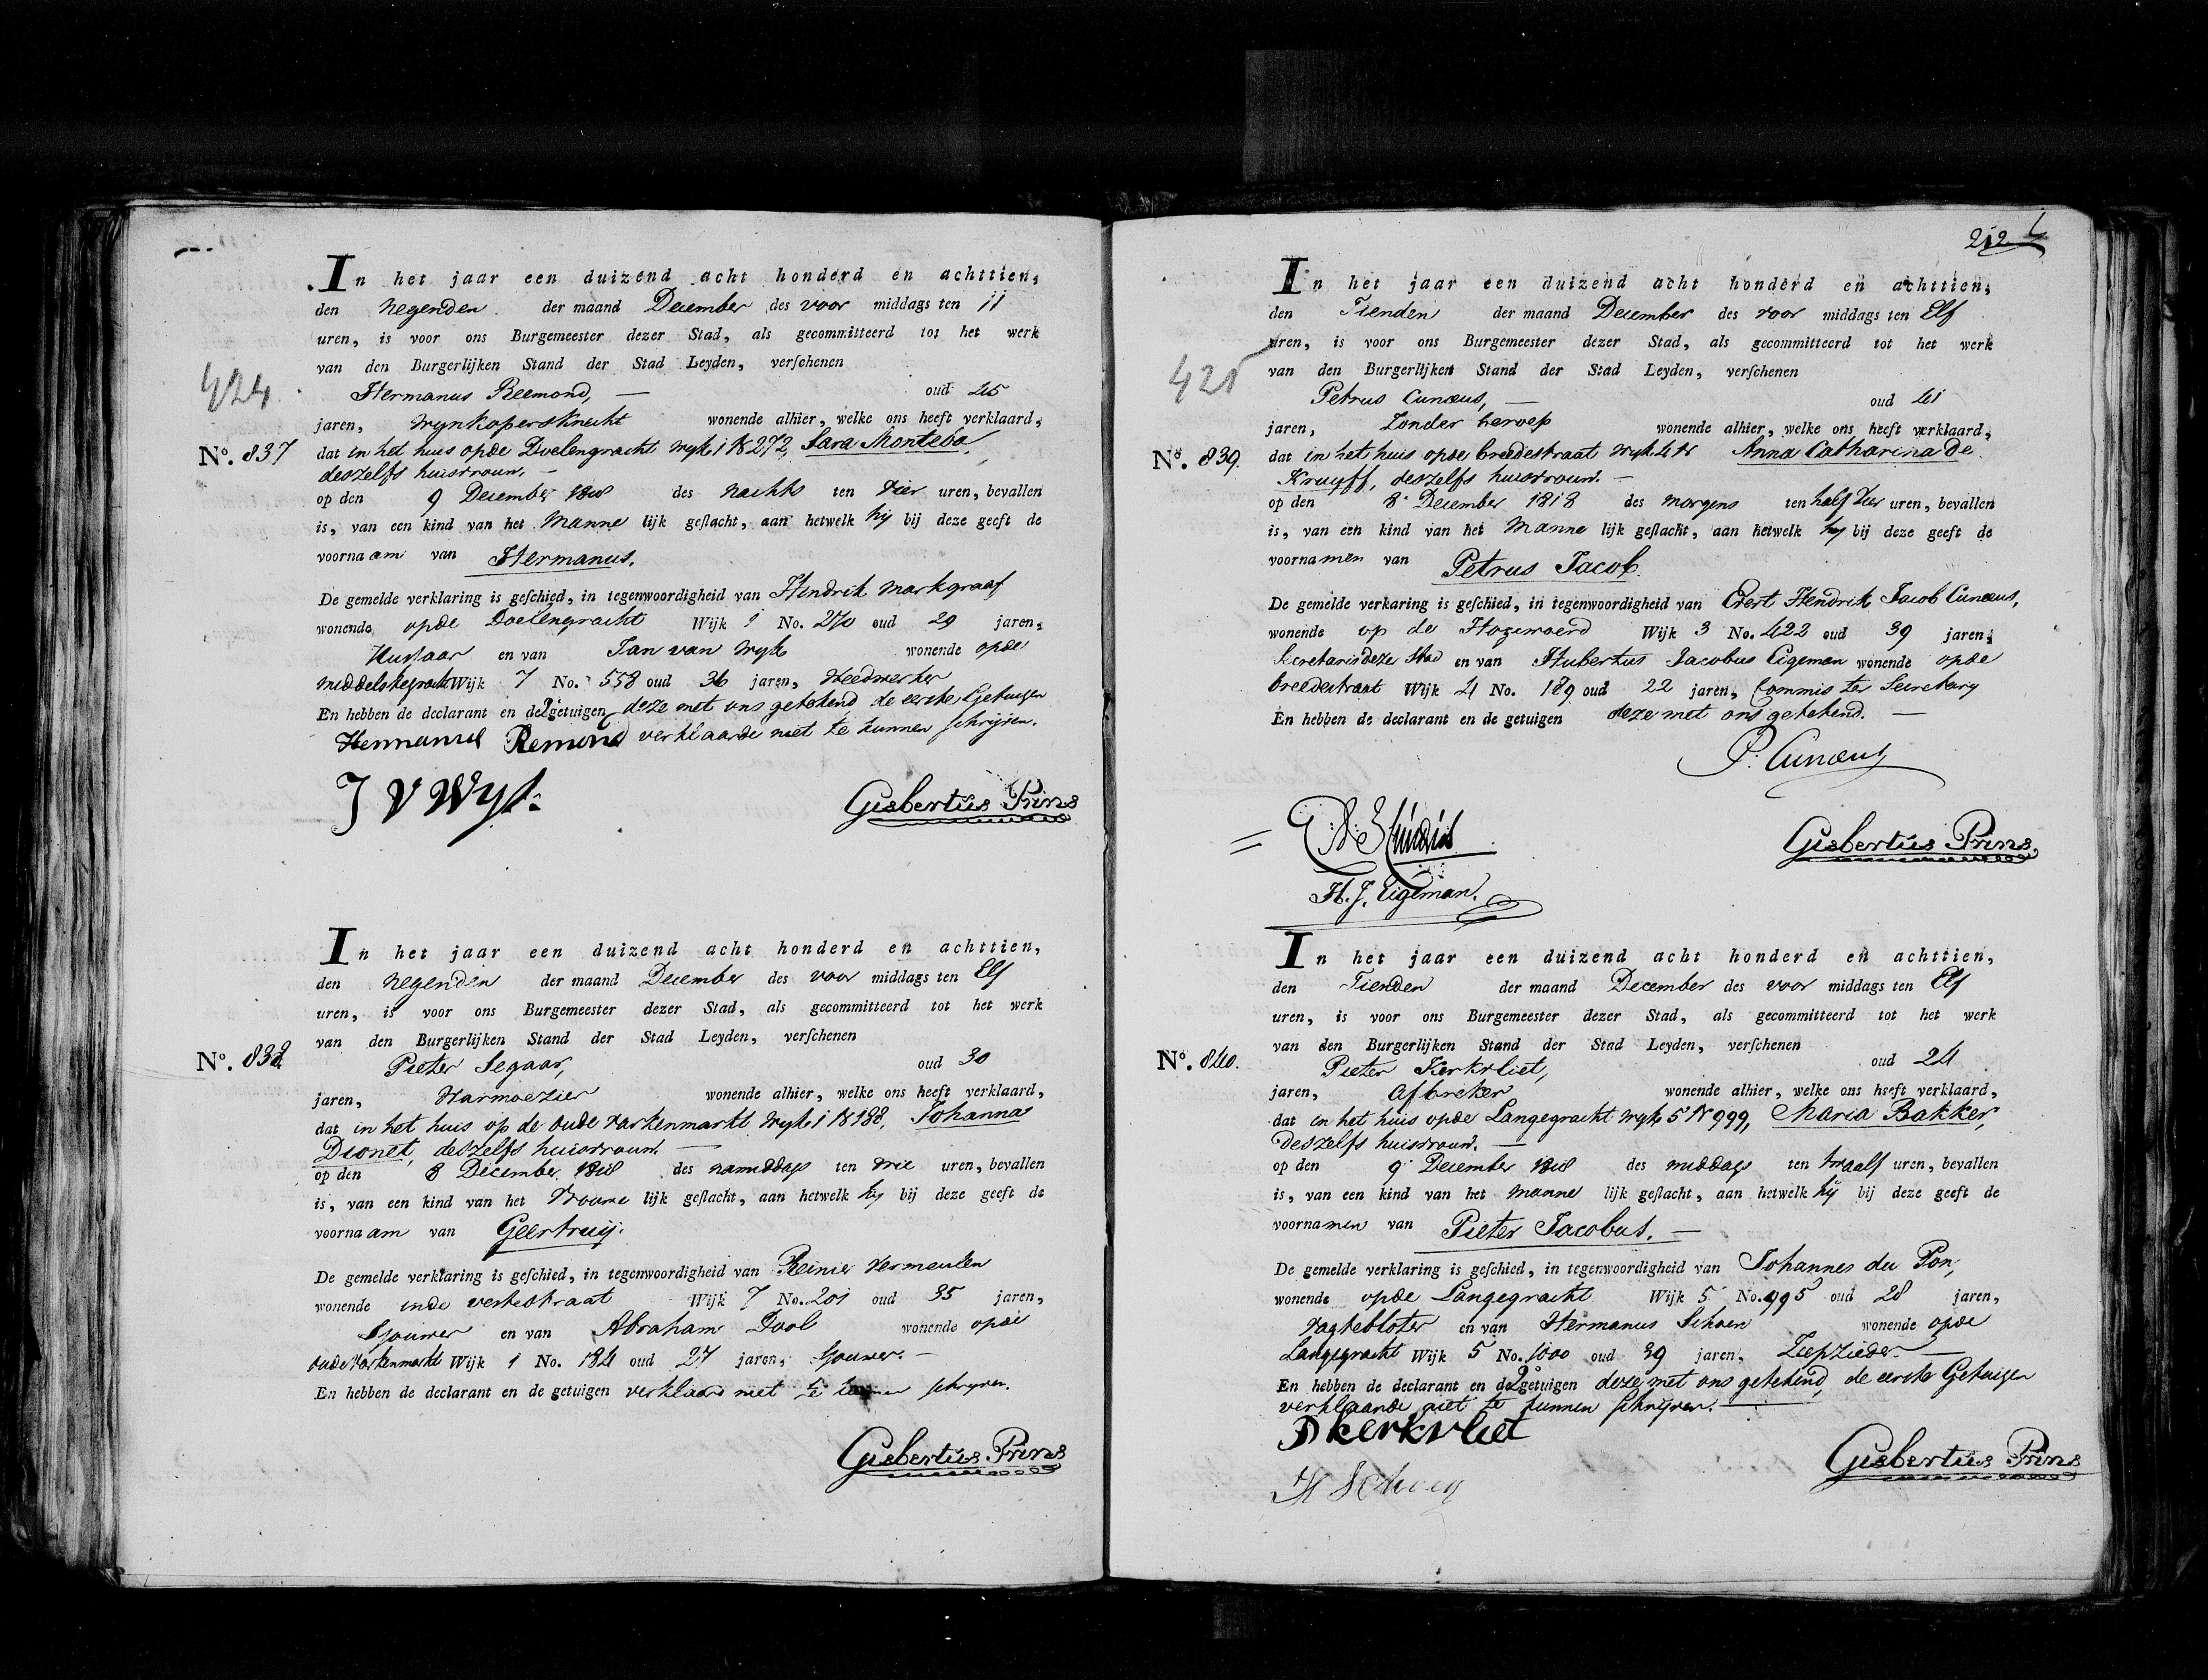 In het jaar een duizend acht honderd en achttien,
den negenden der maand December des voor middags ten 11
uren, is voor ons Burgemeester dezer Stad, als gecommitteerd tot het werk
van den Burgerlijken Stand der Stad Leyden, verschenen
424
Hermanus Reemond, oud 45
jaren, wynkopersknecht wonende alhier, welke ons heeft verklaard,
No. 837 dat in het huis opde Doelengracht wyk 1 N 272, Sara Montebo,
deszelfs huisvrouw.
op den 9 December 1818 des nachts ten vier uren, bevallen
is, van een kind van het Manne lijk geslacht, aan hetwelk hy bij deze geeft de
voornaam van Hermanus.
De gemelde verklaring is geschied, in tegenwoordigheid van Hendrik Markgraaf
wonende opde Doelengracht Wijk 1 No. 270 oud 29 jaren,
Huszaar en van Jan van Wyk wonende opde
middelstegracht Wijk 7 No. 558 oud 36 jaren, Kleedwerker
En hebben de declarant en de 2e getuigen deze met ons getekend, de eerste Getuigen
verklaarde niet te kunnen schryven.
Hermanus Remond
J V Wyk
Gisbertus Prins
In het jaar een duizend acht honderd en achttien,
den negenden der maand December des voor middags ten Elf
uren, is voor ons Burgemeester dezer Stad, als gecommitteerd tot het werk
van den Burgerlijken Stand der Stad Leyden, verschenen
No. 838 Pieter Segaar, oud 30
jaren, Warmoezier wonende alhier, welke ons heeft verklaard,
dat in het huis op de Oude varkenmarkt Wyk 1 N 188, Johanna
Dionet, deszelfs huisvrouw.
op den 8 December 1818 des namiddags ten drie uren, bevallen
is, van een kind van het Vrouwe lijk geslacht, aan hetwelk hy bij deze geeft de
voornaam van Geertruij.
De gemelde verklaring is geschied, in tegenwoordigheid van Reinier Vermeulen
wonende inde vestestraat Wijk 7 No. 201 oud 35 jaren,
Sjouwer en van Abraham Dool wonende opde
oude Varkenmarkt Wijk 1 No. 184 oud 27 jaren, Sjouwer.
En hebben de declarant en de getuigen verklaard niet te kunnen schryven.
Gisbertus Prins
212
In het jaar een duizend acht honderd en achttien,
den Tienden der maand December des voor middags ten Elf
uren, is voor ons Burgemeester dezer Stad, als gecommitteerd tot het werk
van den Burgerlijken Stand der Stad Leyden, verschenen
425
Petrus Cunæus, oud 41
jaren, Zonder beroep wonende alhier, welke ons heeft verklaard,
No. 839. dat in het huis opde breedestraat wyk 4 N Anna Catharina de
Kruyff, deszelfs huisvrouw.
op den 8 December 1818 des morgens ten half uren, bevallen
is, van een kind van het Manne lijk geslacht, aan hetwelk hy bij deze geeft de
voornamen van Petrus Jacob.
De gemelde verkaring is geschied, in tegenwoordigheid van Evert Hendrik Jacob Cunæus,
wonende op de Hogewoerd Wijk 3 No. 422 oud 39 jaren,
Secretaris deze Stad en van Hubertus Jacobus Eigeman wonende opde
breedestraat Wijk 4 No. 189 oud 22 jaren, Commis ter Secretary
En hebben de declarant en de getuigen deze met ons getekend.
P. Cunæus
Gisbertus Prins
H. J. Eigeman.
In het jaar een duizend acht honderd en achttien,
den Tienden der maand December des voor middags ten Elf
uren, is voor ons Burgemeester dezer Stad, als gecommitteerd tot het werk
van den Burgerlijken Stand der Stad Leyden, verschenen
No. 840. Pieter Kerkvliet, oud 24
jaren, Afbreker wonende alhier, welke ons heeft verklaard,
dat in het huis opde Langegracht wyk 5 N 999, Maria Bakker,
deszelfs huisvrouw.
op den 9 December 1818 des middags ten twaalf uren, bevallen
is, van een kind van het manne lijk geslacht, aan hetwelk hij bij deze geeft de
voornamen van Pieter Jacobus.
De gemelde verklaring is geschied, in tegenwoordigheid van Johannes du Pon,
wonende opde Langegracht Wijk 5 No. 995 oud 28 jaren,
Vagtebloter en van Hermanus Schoen wonende opde
Langegracht Wijk 5 No. 1000 oud 39 jaren, Zeepzieder.
En hebben de declarant en de 2e getuigen deze met ons getekend, de eerste Getuigen
verklaarde niet te kunnen schrijven.
P kerkvliet
H Schoen
Gisbertus Prins